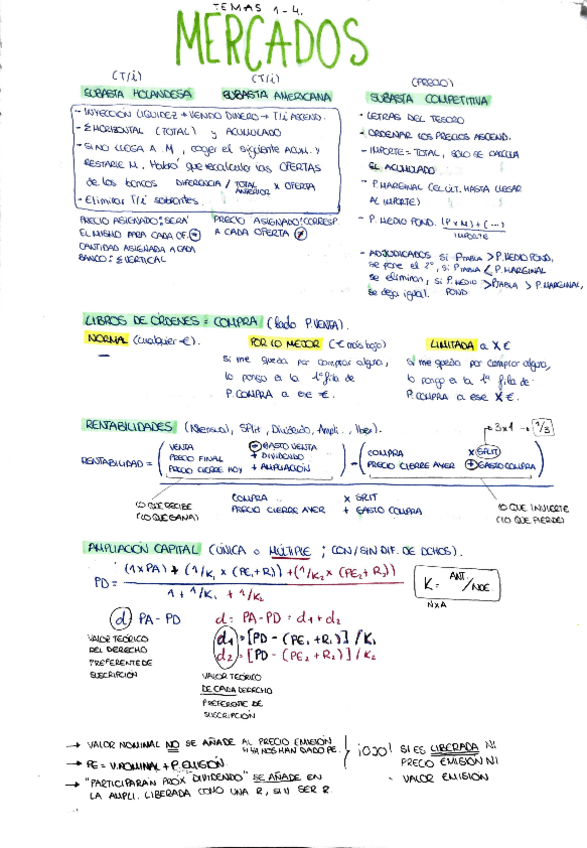 TEMAS 1-4.
MERCADOS
(T/i) (T/i) (PRECIO)
SUBASTA HOLANDESA SUBASTA AMERICANA SUBASTA COMPETITIVA
- INYECCIÓN LIQUIDEZ → VENDO DINERO → T/i ASCEND.
- Σ HORIZONTAL (TOTAL) y ACUMULADO
- SI NO LLEGA A M, coger el siguiente ACUM. Y
RESTARLE M. Habrá que recalcular las OFERTAS
de los bancos DIFERENCIA / TOTAL ANTERIOR x OFERTA
- Eliminar T/i sobrantes.
PRECIO ASIGNADO: SERÁ
EL MISMO PARA CADA OF.
CANTIDAD ASIGNADA A CADA
BANCO: Σ VERTICAL
PRECIO ASIGNADO: CORRESP.
A CADA OFERTA
- LETRAS DEL TESORO
- ORDENAR LOS PRECIOS ASCEND.
- IMPORTE = TOTAL, SOLO SE CALCULA
EL ACUMULADO
- P. MARGINAL (EL ÚLT. HASTA LLEGAR
AL IMPORTE)
- P. MEDIO POND. (P x M) + (...)
IMPORTE
- ADJUDICADOS SI P TABLA > P. MEDIO POND,
se pone el 2º, SI P TABLA < P. MARGINAL
se eliminan, SI P. MEDIO POND > P TABLA > P. MARGINAL,
se deja igual.
LIBROS DE ORDENES = COMPRA (lado P. VENTA).
NORMAL (cualquier €). POR LO MEJOR (€ más bajo) LIMITADA a X €
si me queda por comprar algo,
lo pongo en la 1ª fila de
P. COMPRA a ese €.
si me queda por comprar algo,
lo pongo en la 1ª fila de
P. COMPRA a ese X €.
RENTABILIDADES (Mensual, Split, Dividendo, Ampli., Iber).
3x1 → 1/3
RENTABILIDAD = ( VENTA + GASTO VENTA ) - ( COMPRA x SPLIT )
PRECIO FINAL + DIVIDENDO PRECIO CIERRE AYER + GASTO COMPRA
PRECIO CIERRE HOY + AMPLIACIÓN
COMPRA x SPLIT
PRECIO CIERRE AYER + GASTO COMPRA
LO QUE RECIBE
(LO QUE GANA)
LO QUE INVIERTE
(LO QUE PIERDE)
AMPLIACIÓN CAPITAL (ÚNICA o MÚLTIPLE; CON/SIN DIF. DE DCHOS).
PD = (1 x PA) + (1/K₁ x (PE₁ + R₁)) + (1/K₂ x (PE₂ + R₂))
1 + 1/K₁ + 1/K₂
K = ANT/NUE
NxA
d PA - PD d = PA - PD = d₁ + d₂
d₁ = [PD - (PE₁ + R₁)] / K₁
d₂ = [PD - (PE₂ + R₂)] / K₂
VALOR TEÓRICO
DEL DERECHO
PREFERENTE DE
SUSCRIPCIÓN
VALOR TEÓRICO
DE CADA DERECHO
PREFERENTE DE
SUSCRIPCIÓN
→ VALOR NOMINAL NO SE AÑADE AL PRECIO EMISIÓN
SI YA NOS HAN DADO PE.
→ PE = V. NOMINAL + P. EMISIÓN
→ "PARTICIPARÁN PRÓX DIVIDENDO" SE AÑADE EN
LA AMPLI. LIBERADA COMO UNA R, SIN SER R.
¡OJO! SI ES LIBERADA NI
PRECIO EMISIÓN NI
VALOR EMISIÓN